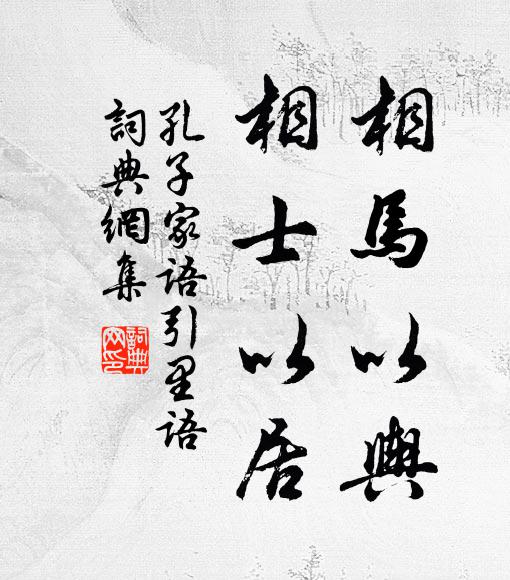 相馬以輿
相士以居
孔子家語引里語
詞典網集
詞典
网印